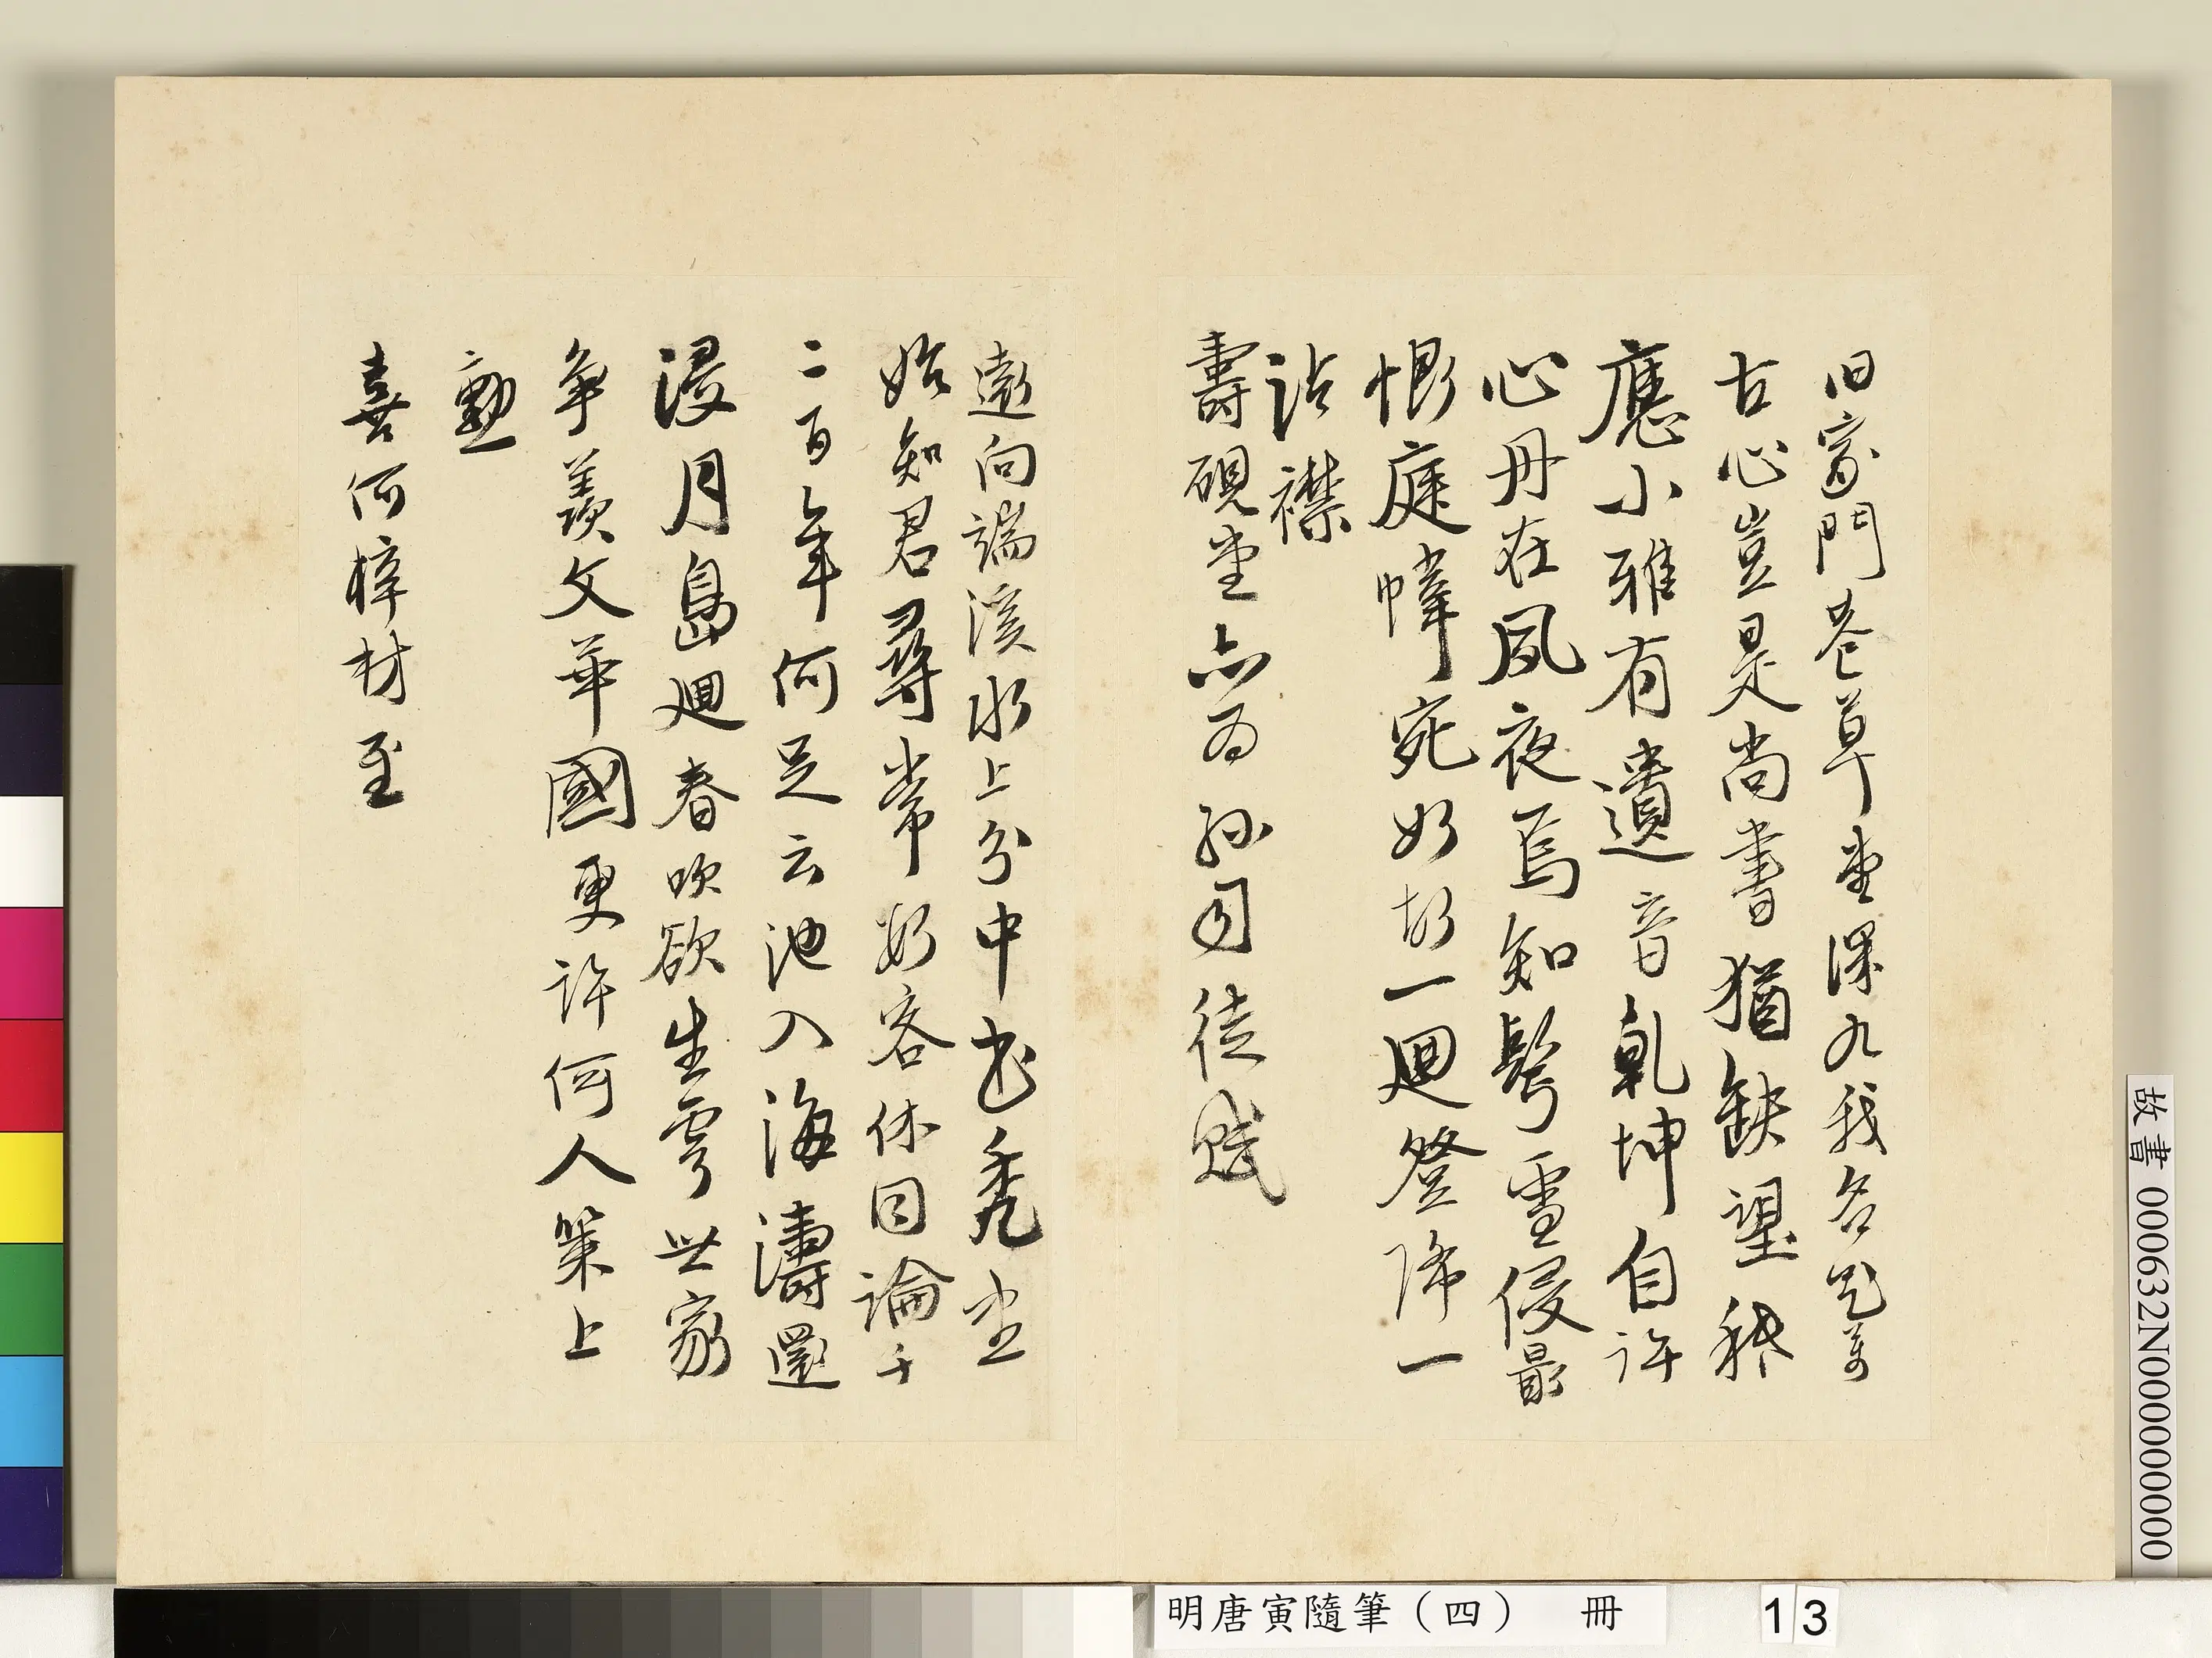 旧家門巷草堂深九我名花萬
古心豈是尚書猶缺望秪
應小雅有遺音乾坤自許
心丹在夙夜焉知鬢雪侵最
恨庭幃宛如埜一迴登降一
沾襟
壽硯堂亦為孫司徒賦
遠向端溪水上分中書禿盡
始知君尋常好客休同論千
二百年何足云池入海濤還
浸月島迴春吹欲生雲世家
爭羨文華國更許何人策上
勳
喜何梓材至
明唐寅隨筆（四） 冊
13
故書 000632N000000000